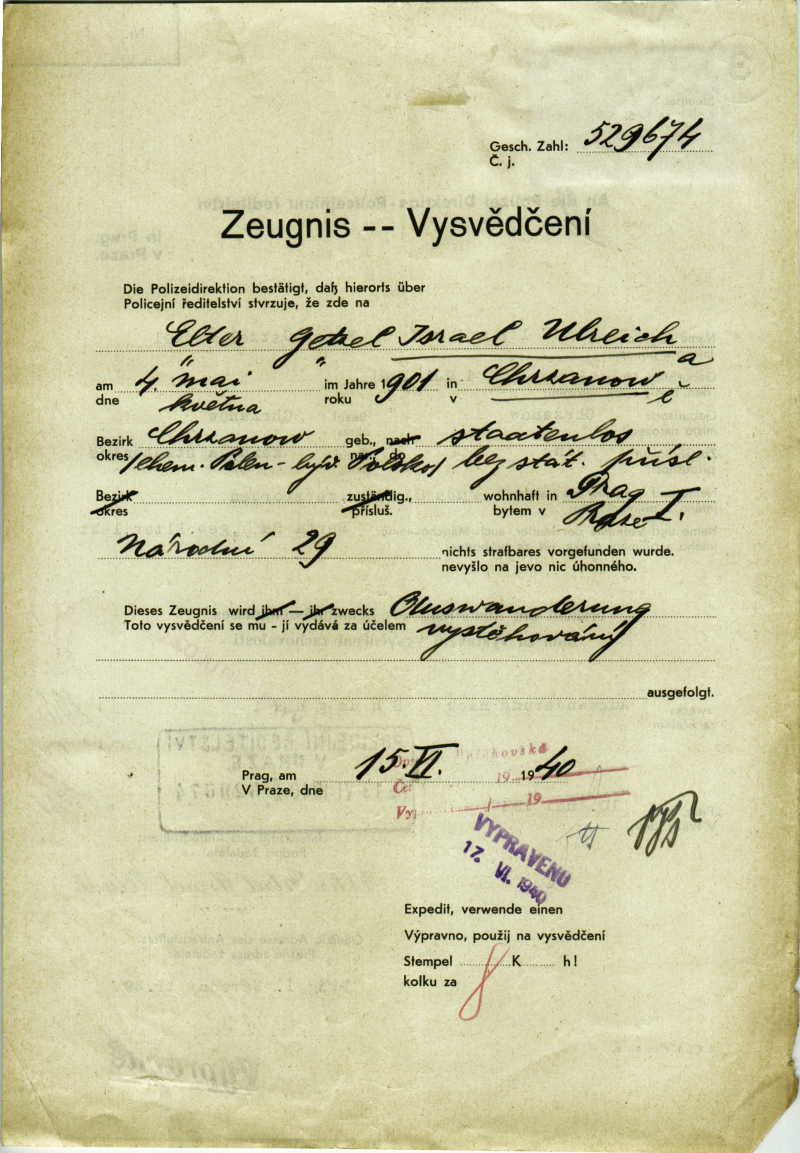 Gesch. Zahl: 529674
Č. j.
Zeugnis -- Vysvědčení
Die Polizeidirektion bestätigt, daß hierorts über
Policejní ředitelství stvrzuje, že zde na
Elter Getzel Israel Ulreich
am 4. mai im Jahre 1901 in Chrzanow
dne května roku v ě
Bezirk Chrzanow geb., nach staatenlos
okres /ehem. Polen - býv. Polsko/ bez stát. přísl.
Bezirk zuständig., wohnhaft in Prag
okres přísluš. bytem v Praze I.
Národní 29 nichts strafbares vorgefunden wurde.
nevyšlo na jevo nic úhonného.
Dieses Zeugnis wird ihm — ihr zwecks Auswanderung
Toto vysvědčení se mu - jí vydává za účelem vystěhování
ausgefolgt.
Prag, am 15. VI. 1940
V Praze, dne
VYPRAVENO
17. VI. 1940
Expedit, verwende einen
Výpravno, použij na vysvědčení
Stempel K h!
kolku za 8